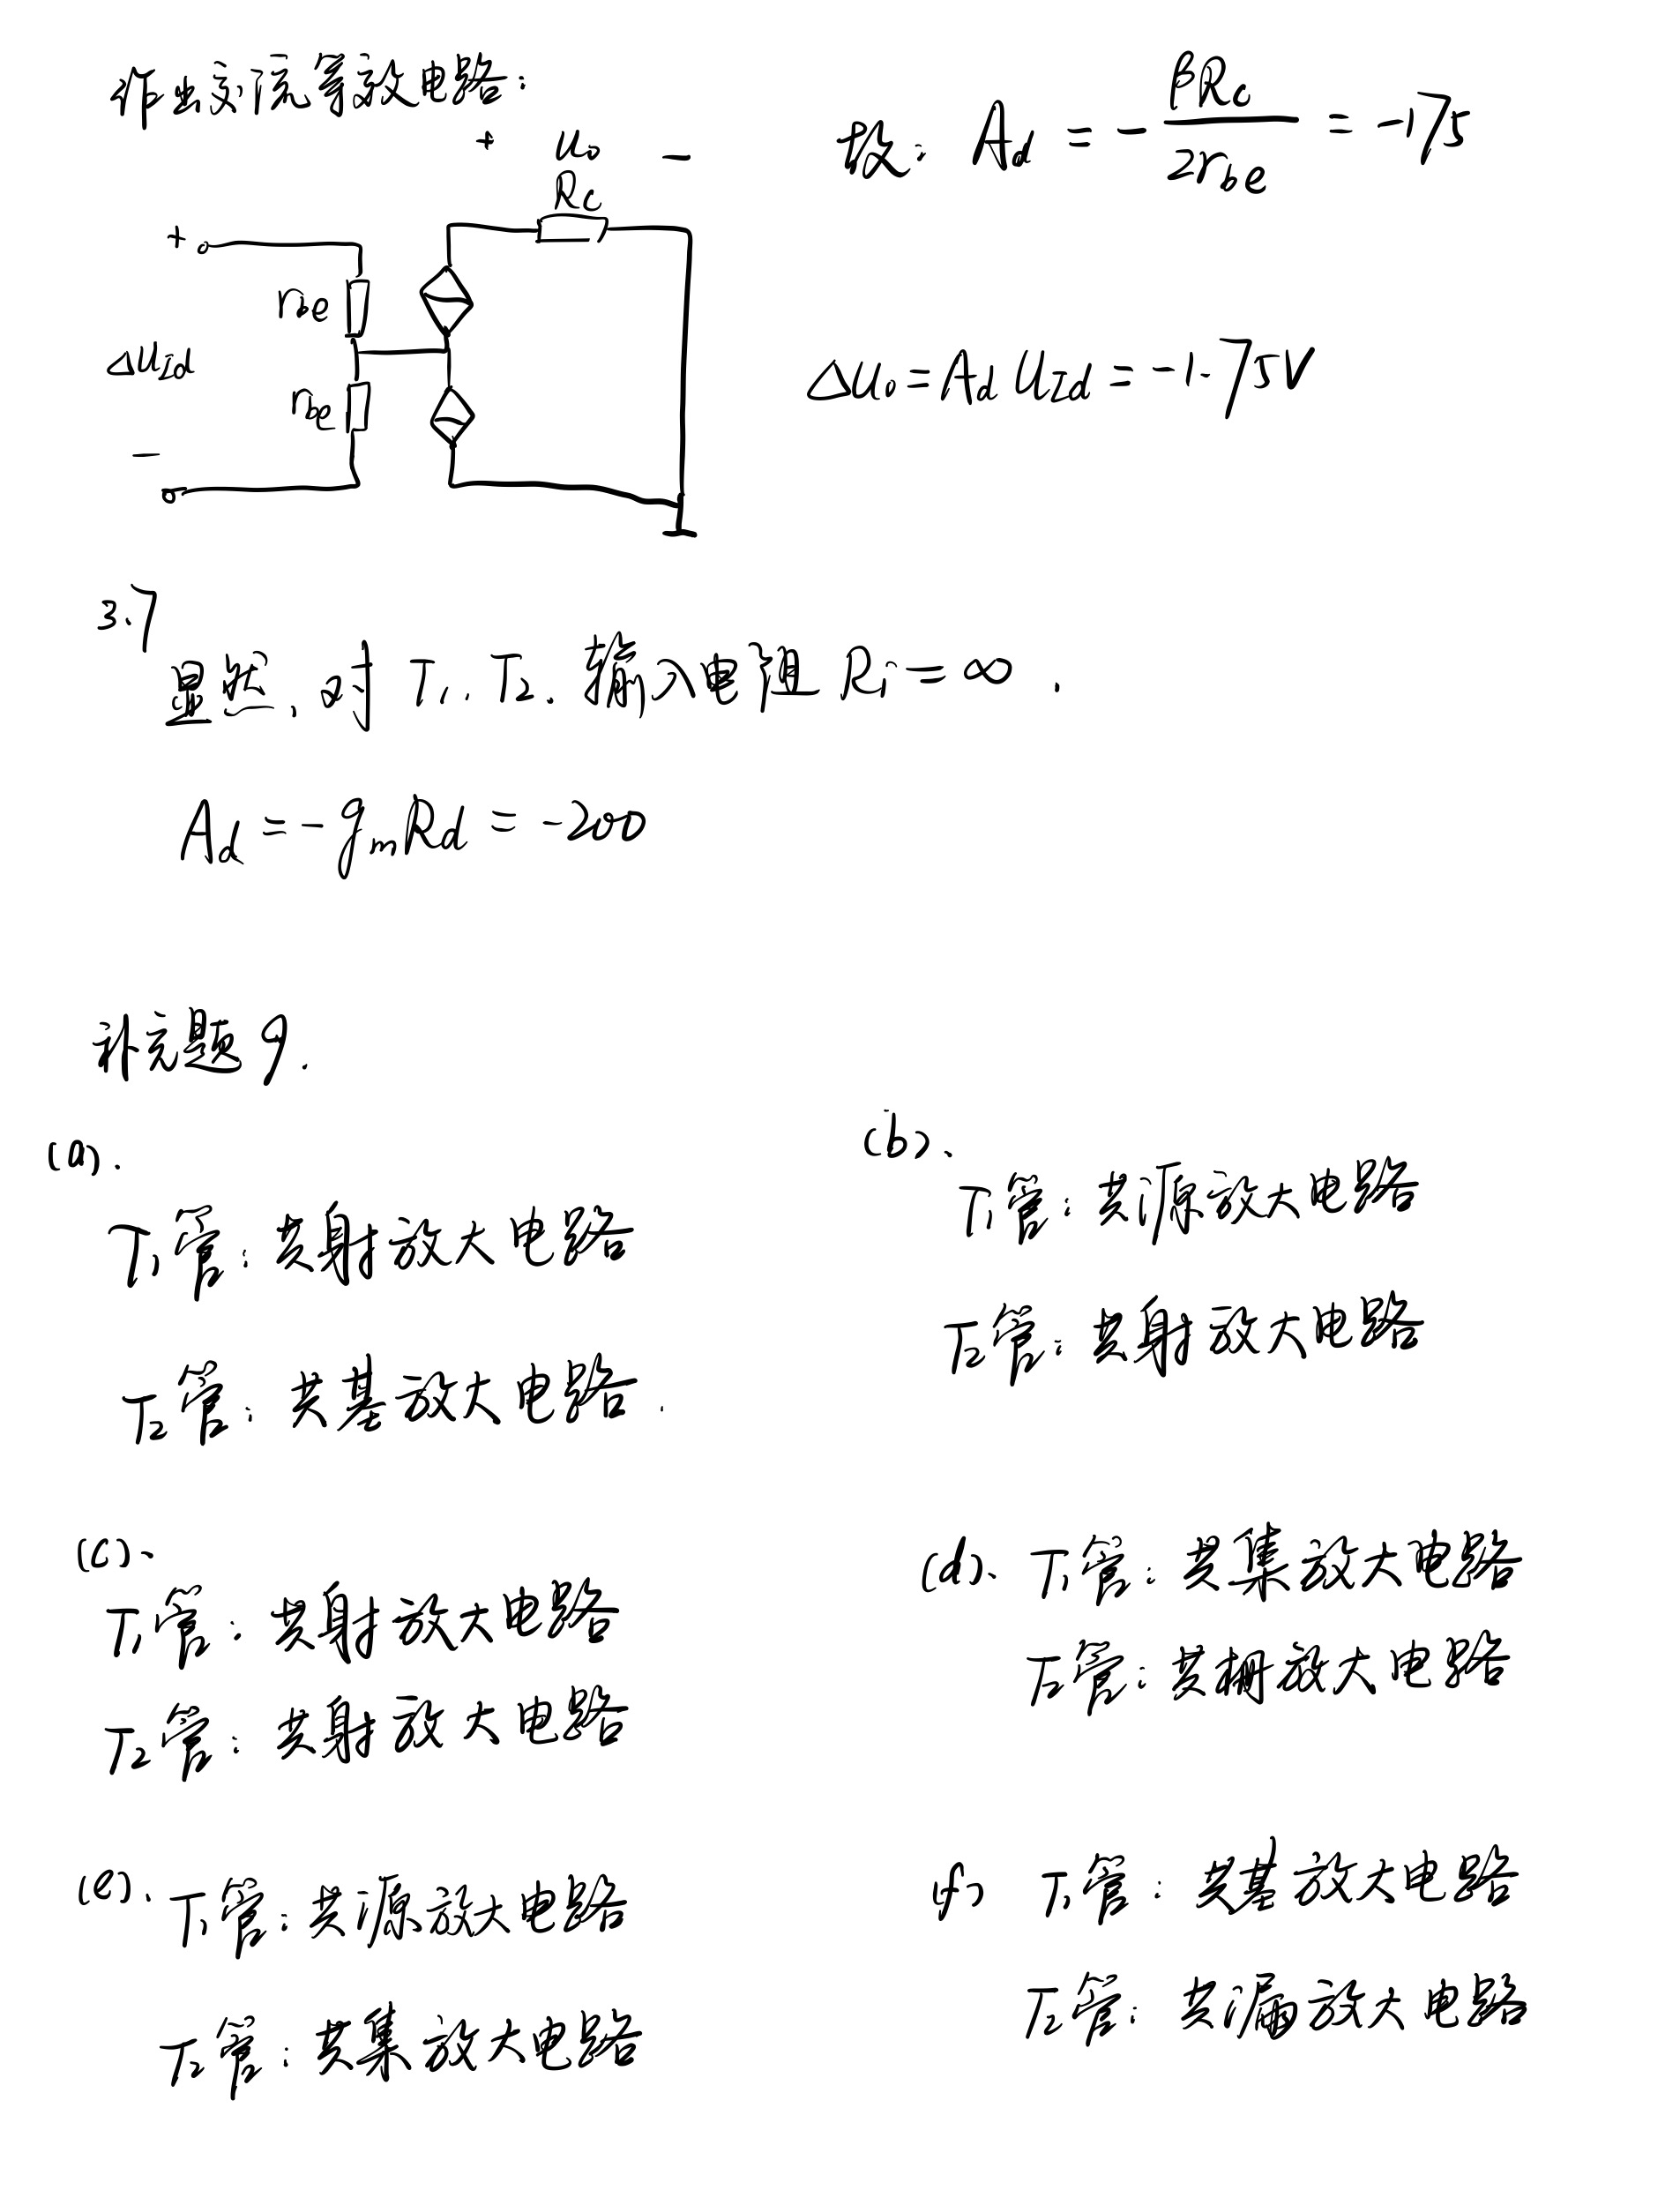 作出交流等效电路:
+ u₀ -
Rc
+
rbe
Δu_Id
rbe
-
故: Ad = - βRc / 2rbe = -175
Δu₀ = Ad u_Id = -1.75V
3.7
显然, 对 T₁, T₂, 输入电阻 Ri = ∞.
Ad = -gmRd = -200
补充题9.
(a).
T₁管: 共射放大电路
T₂管: 共基放大电路.
(b).
T₁管: 共源放大电路
T₂管: 共射放大电路
(c).
T₁管: 共射放大电路
T₂管: 共射放大电路
(d). T₁管: 共集放大电路
T₂管: 共栅放大电路
(e). T₁管: 共源放大电路
T₂管: 共集放大电路
(f) T₁管: 共基放大电路
T₂管: 共漏放大电路